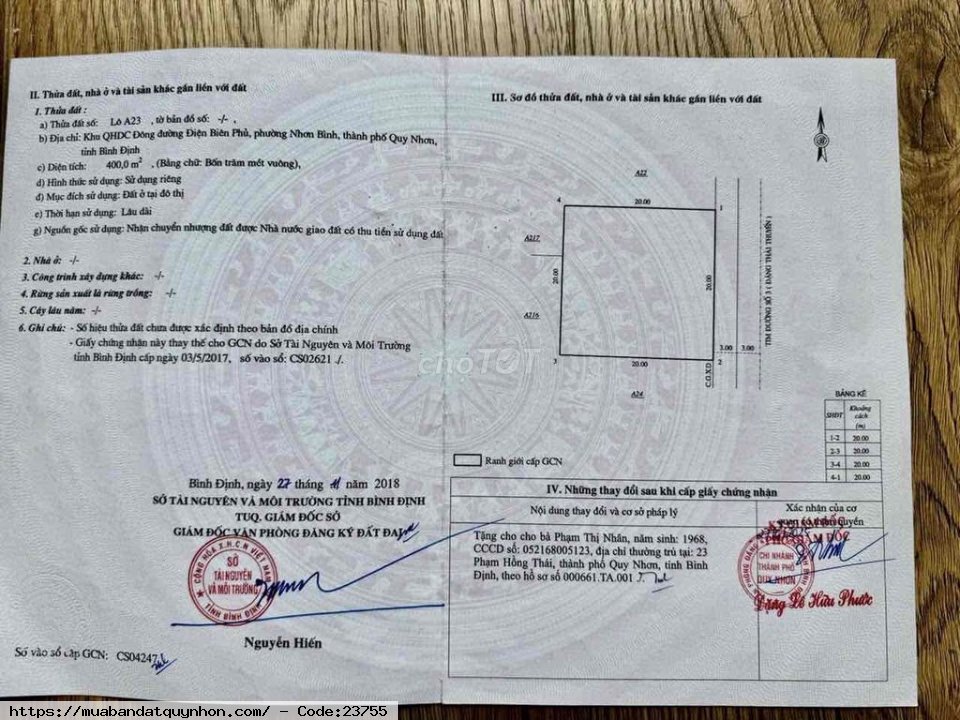 II. Thửa đất, nhà ở và tài sản khác gắn liền với đất
1. Thửa đất :
a) Thửa đất số: Lô A23 , tờ bản đồ số: -/- ,
b) Địa chỉ: Khu QHDC Đông đường Điện Biên Phủ, phường Nhơn Bình, thành phố Quy Nhơn,
tỉnh Bình Định
c) Diện tích: 400,0 m² , (Bằng chữ: Bốn trăm mét vuông),
d) Hình thức sử dụng: Sử dụng riêng
đ) Mục đích sử dụng: Đất ở tại đô thị
e) Thời hạn sử dụng: Lâu dài
g) Nguồn gốc sử dụng: Nhận chuyển nhượng đất được Nhà nước giao đất có thu tiền sử dụng đất
2. Nhà ở: -/-
3. Công trình xây dựng khác: -/-
4. Rừng sản xuất là rừng trồng: -/-
5. Cây lâu năm: -/-
6. Ghi chú: - Số hiệu thửa đất chưa được xác định theo bản đồ địa chính
- Giấy chứng nhận này thay thế cho GCN do Sở Tài Nguyên và Môi Trường
tỉnh Bình Định cấp ngày 03/5/2017, số vào sổ: CS02621 ./.
Bình Định, ngày 27 tháng 11 năm 2018
SỞ TÀI NGUYÊN VÀ MÔI TRƯỜNG TỈNH BÌNH ĐỊNH
TUQ. GIÁM ĐỐC SỞ
GIÁM ĐỐC VĂN PHÒNG ĐĂNG KÝ ĐẤT ĐAI
CỘNG HÒA X.H.C.N VIỆT NAM
SỞ
TÀI NGUYÊN
VÀ MÔI TRƯỜNG
TỈNH BÌNH ĐỊNH
Nguyễn Hiến
Số vào sổ cấp GCN: CS04247
III. Sơ đồ thửa đất, nhà ở và tài sản khác gắn liền với đất
B
A22
4
20.00
1
A217
20.00
20.00
A216
3.00
3.00
3
20.00
2
A24
C.G.X.D
TIM ĐƯỜNG SỐ 3 ( ĐẶNG THÁI THUYẾN )
BẢNG KÊ
SHĐT
Khoảng
cách
(m)
1-2 20.00
2-3 20.00
3-4 20.00
4-1 20.00
Ranh giới cấp GCN
IV. Những thay đổi sau khi cấp giấy chứng nhận
Nội dung thay đổi và cơ sở pháp lý
Xác nhận của cơ
quan có thẩm quyền
Tặng cho cho bà Phạm Thị Nhãn, năm sinh: 1968,
CCCD số: 052168005123, địa chỉ thường trú tại: 23
Phạm Hồng Thái, thành phố Quy Nhơn, tỉnh Bình
Định, theo hồ sơ số 000661.TA.001
PHÓ GIÁM ĐỐC
CHI NHÁNH
THÀNH PHỐ
QUY NHƠN
Đặng Lê Hữu Phước
choTỐT
https://muabandatquynhon.com/ - Code:23755